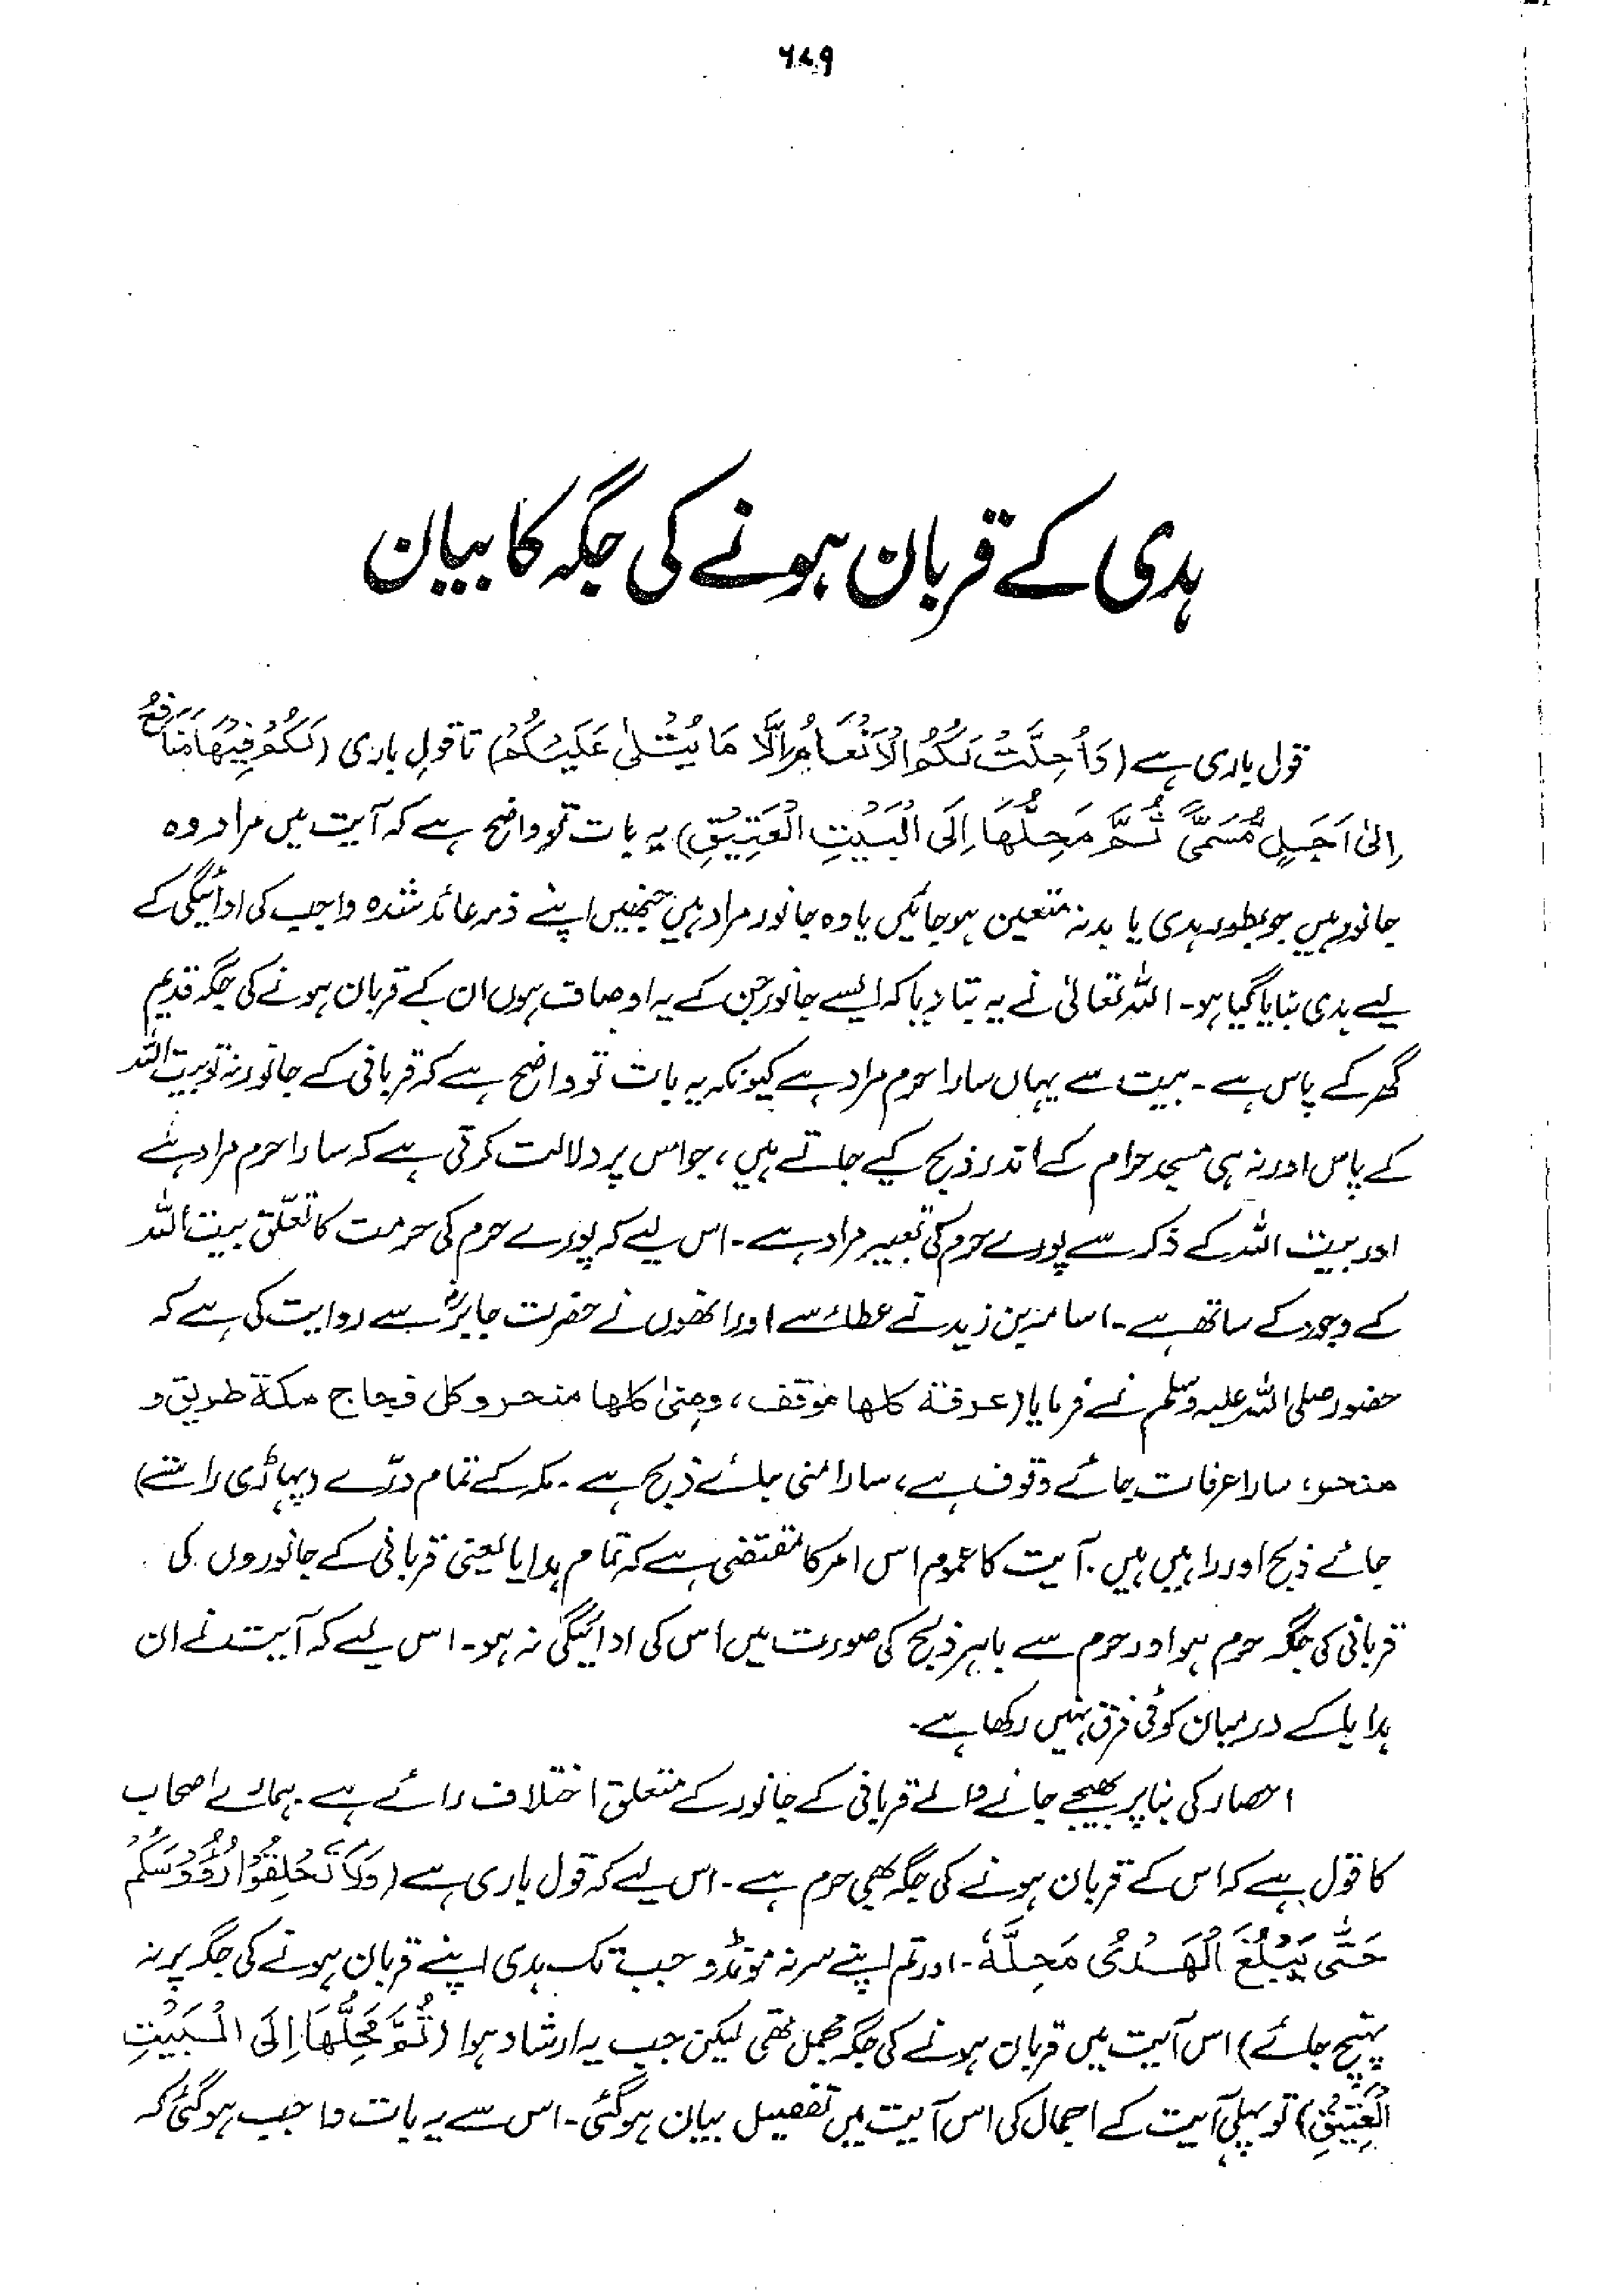 ۶۷۹
ہدی کے قربان ہونے کی جگہ کا بیان
قول باری ہے (وَاُحِلَّتْ لَكُمُ الْاَنْعَامُ اِلَّا مَا يُتْلٰى عَلَيْكُمْ) تا قولِ باری (لَكُمْ فِيْهَا مَنَافِعُ
اِلٰى اَجَلٍ مُّسَمًّى ثُمَّ مَحِلُّهَا اِلَى الْبَيْتِ الْعَتِيْقِ) یہ بات تو واضح ہے کہ آیت میں مراد وہ
جانور ہیں جو بطور ہدی یا بدنہ متعین ہو جائیں یا وہ جانور مراد ہیں جنھیں اپنے ذمہ عائد شدہ واجب کی ادائیگی کے
لیے ہدی بنایا گیا ہو۔ اللہ تعالیٰ نے یہ بتا دیا کہ ایسے جانور جن کے یہ اوصاف ہوں ان کے قربان ہونے کی جگہ قدیم
گھر کے پاس ہے۔ بیت سے یہاں سارا حرم مراد ہے کیونکہ یہ بات تو واضح ہے کہ قربانی کے جانور نہ تو بیت اللہ
کے پاس اور نہ ہی مسجد حرام کے اندر ذبح کیے جاتے ہیں، جو اس پر دلالت کرتی ہے کہ سارا حرم مراد ہے
اور بیت اللہ کے ذکر سے پورے حرم کی تعبیر مراد ہے۔ اس لیے کہ پورے حرم کی حرمت کا تعلّق بیت اللہ
کے وجود کے ساتھ ہے۔ اسامہ بن زید نے عطاء سے اور انھوں نے حضرت جابرؓ سے روایت کی ہے کہ
حضور صلی اللہ علیہ وسلم نے فرمایا (عرفة كلها موقف، ومنىٰ كلها منحر وكل فجاج مكة طريق و
منحر، سارا عرفات جائے وقوف ہے، سارا منی جائے ذبح ہے۔ مکہ کے تمام درّے (پہاڑی راستے)
جائے ذبح اور راہیں ہیں۔ آیت کا عموم اس امر کا مقتضی ہے کہ تمام ہدایا یعنی قربانی کے جانوروں کی
قربانی کی جگہ حرم ہو اور حرم سے باہر ذبح کی صورت میں اس کی ادائیگی نہ ہو۔ اس لیے کہ آیت نے ان
ہدایا کے درمیان کوئی فرق نہیں رکھا ہے۔
احصار کی بنا پر بھیجے جانے والے قربانی کے جانور کے متعلق اختلاف رائے ہے۔ ہمارے اصحاب
کا قول ہے کہ اس کے قربان ہونے کی جگہ بھی حرم ہے۔ اس لیے کہ قول باری ہے (وَلَا تَحْلِقُوْا رُؤُوْسَكُمْ
حَتّٰى يَبْلُغَ الْهَدْىُ مَحِلَّهٗ۔ اور تم اپنے سر نہ مونڈو جب تک ہدی اپنے قربان ہونے کی جگہ پر نہ
پہنچ جائے) اس آیت میں قربان ہونے کی جگہ مجمل تھی لیکن جب یہ ارشاد ہوا (ثُمَّ مَحِلُّهَا اِلَى الْبَيْتِ
الْعَتِيْقِ) تو پہلی آیت کے اجمال کی اس آیت میں تفصیل بیان ہو گئی۔ اس سے یہ بات واجب ہو گئی کہ